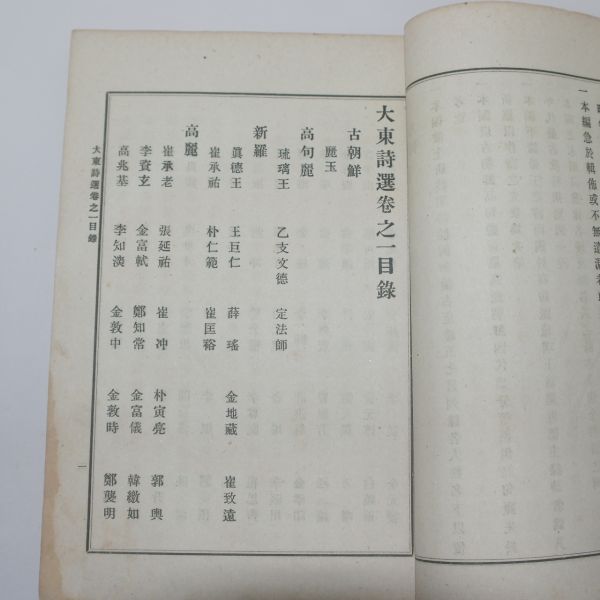 一 本編急於輯佈或不無遺漏
大東詩選卷之一目錄
古朝鮮
麗玉
高句麗
琉璃王 乙支文德 定法師
新羅
眞德王 王巨仁 薛瑤 金地藏 崔致遠
崔承祐 朴仁範 崔匡裕
高麗
崔承老 張延祐 崔冲 朴寅亮 郭輿
李資玄 金富軾 鄭知常 金富儀 韓繳如
高兆基 李知深 金敦中 金敦時 鄭襲明
大東詩選卷之一目錄
一